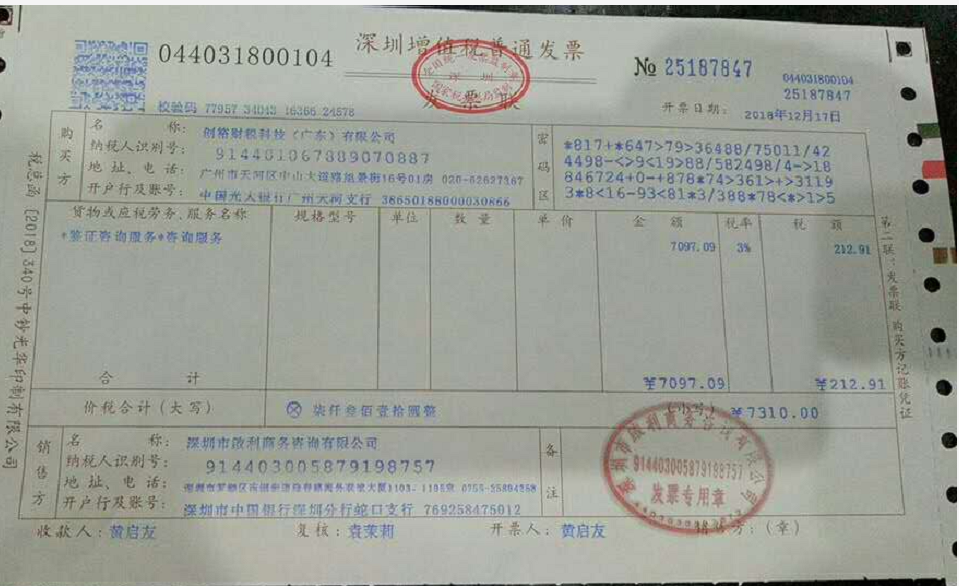 044031800104
深圳增值税普通发票
发票联
№ 25187847
044031800104
25187847
校验码 77957 34043 16366 24578
开票日期: 2018年12月17日
购买方
名 称: 创裕财税科技(广东)有限公司
纳税人识别号: 914401067889070887
地 址、电 话: 广州市天河区中山大道路凰景街16号01房 020-62627367
开户行及账号: 中国光大银行广州天河支行 38650188000030866
密码区
*817+*647>79>36488/75011/42
4498-<>9<19>88/582498/4->18
846724+0-+878*74>361>+>3119
3*8<16-93<81*3/388*78<*>1>5
货物或应税劳务、服务名称 规格型号 单位 数量 单价 金额 税率 税额
*鉴证咨询服务*咨询服务 7097.09 3% 212.91
合 计 ¥7097.09 ¥212.91
价税合计(大写) ⊗ 柒仟叁佰壹拾圆整 (小写) ¥7310.00
销售方
名 称: 深圳市啟利商务咨询有限公司
纳税人识别号: 914403005879198757
地 址、电 话:
开户行及账号: 深圳市中国银行深圳分行蛇口支行 769258475012
备注
914403005879198757
发票专用章
收款人: 黄启友 复核: 袁茉莉 开票人: 黄启友 销售方:(章)
税总函[2018]340号中钞光华印制有限公司
第二联:发票联 购买方记账凭证